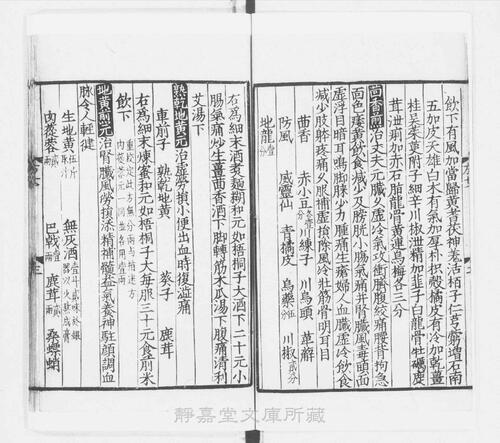 飲下有風加當歸黃耆茯神羗活栢子仁芎藭增石南
五加皮天雄白木有氣加厚朴枳殼橘皮有冷加乾薑
桂吳茱萸附子細辛川椒泄精加韭子白龍骨牡礪鹿
茸泄痢加赤石脂龍骨黃連烏梅各三分
茴香元治丈夫元臟久虛冷氣攻衝臍腹絞痛腰背拘急
面色痿黃飲食減少及膀胱小腸氣痛并腎臟風毒頭面
虛浮目暗耳鳴脚膝少力腫痛生瘡婦人血臟虛冷飲食
減少肢節疼痛久服補虛損除風冷壯筋骨明耳目
茴香 赤小豆 川練子 川烏頭 萆薢
防風 威靈仙 青橘皮 烏藥 川椒
地龍
右爲細末酒煑麵糊和元如梧桐子大酒下二十元小
腸氣痛炒生薑茴香酒下脚轉筋木瓜湯下腹痛清利
艾湯下
熟乾地黃元治虛勞損小便出血時復澁痛
車前子 熟乾地黃 葵子 鹿茸
右爲細末煉蜜和元如梧桐子大每服三十元食前米
飲下
地黃煎元治腎臟風勞損添精補髓益氣養神駐顏調血
脉令人輕健
生地黃 無灰酒
肉蓯蓉 巴戟 鹿茸 桑螵蛸
靜嘉堂文庫所藏